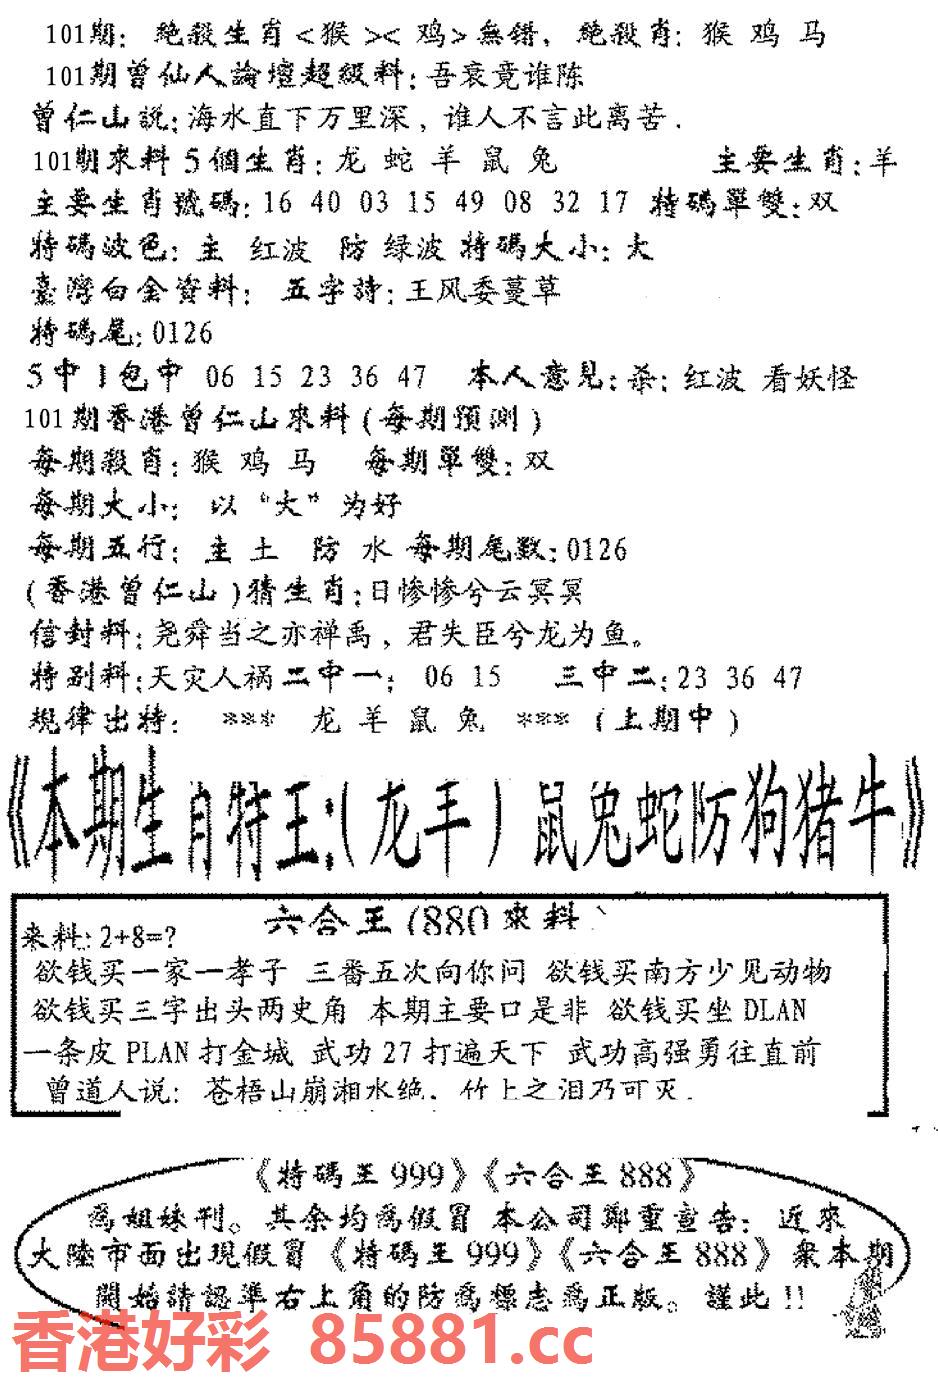 101期: 絶殺生肖<猴><鸡>無错, 絶殺肖: 猴 鸡 马
101期曾仙人論壇超級料: 吾衰竟谁陈
曾仁山説: 海水直下万里深, 谁人不言此离苦.
101期來料 5 個生肖: 龙 蛇 羊 鼠 兔 主要生肖: 羊
主要生肖號碼: 16 40 03 15 49 08 32 17 特碼單雙: 双
特碼波色: 主 红波 防 绿波 特碼大小: 大
臺灣白金資料: 五字詩: 王风委蔓草
特碼尾: 0126
5 中 1 包中 06 15 23 36 47 本人意見: 杀: 红波 看妖怪
101 期香港曾仁山來料 (每期預測)
每期殺肖: 猴 鸡 马 每期單雙: 双
每期大小: 以 "大" 为好
每期五行: 主 土 防 水 每期尾数: 0126
(香港曾仁山) 猜生肖: 日惨惨兮云冥冥
信封料: 尧舜当之亦禅禹, 君失臣兮龙为鱼。
特别料: 天灾人祸 二中一: 06 15 三中二: 23 36 47
規律出特: *** 龙 羊 鼠 兔 *** (上期中)
《本期生肖特王:(龙羊)鼠兔蛇防狗猪牛》
六合王(880來料)
来料: 2+8=?
欲钱买一家一孝子 三番五次向你问 欲钱买南方少见动物
欲钱买三字出头两史角 本期主要口是非 欲钱买坐 DLAN
一条皮 PLAN 打金城 武功 27 打遍天下 武功高强勇往直前
曾道人说: 苍梧山崩湘水绝. 竹上之泪乃可灭.
《特碼王 999》《六合王 888》
爲姐妹刊。其余均爲假冒 本公司鄭重宣告: 近來
大陸市面出現假冒《特碼王 999》《六合王 888》衆本期
開始請認準右上角的防爲標志爲正版。謹此!!
香港好彩 85881.cc